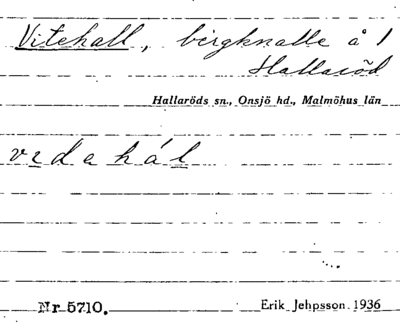 Vitehall, bergknalle å 1
Hallaröd
Hallaröds sn., Onsjö hd., Malmöhus län
vidahál
Nr 5710. Erik Jehpsson 1936